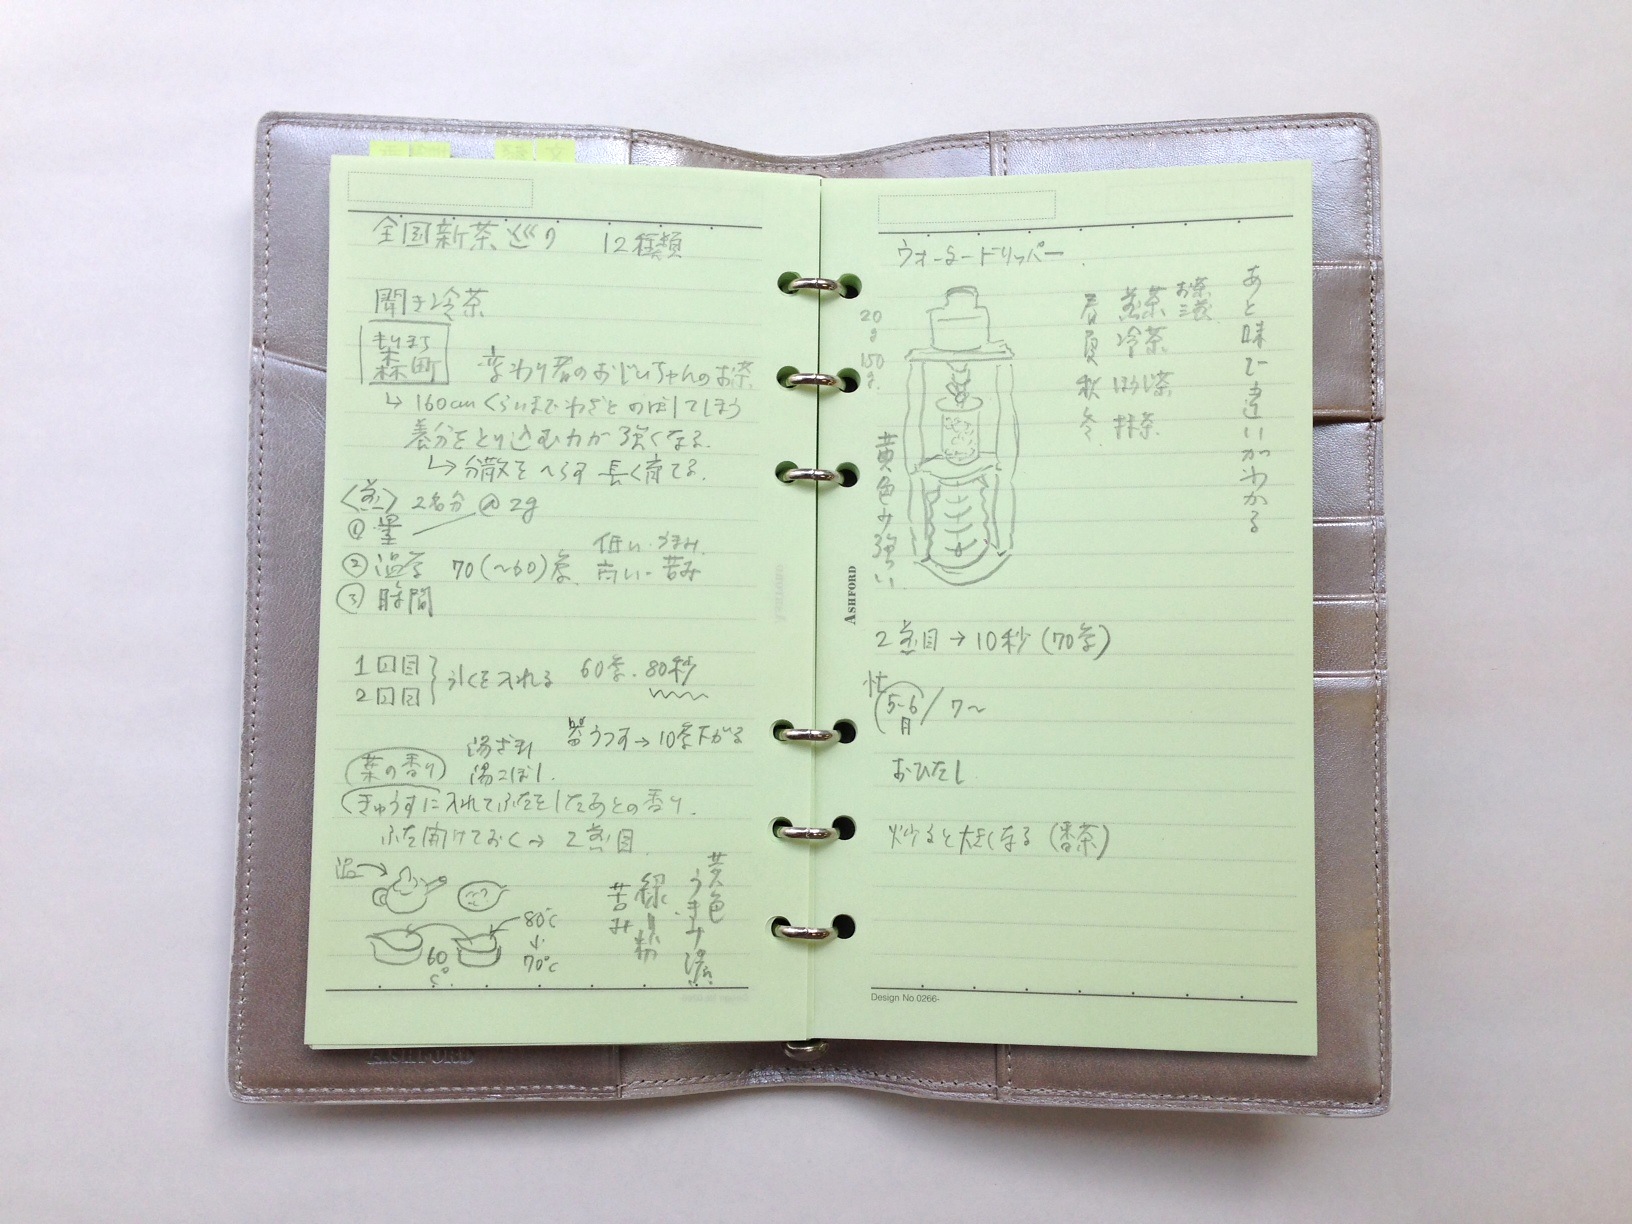 全国新茶巡り 12種類
聞き冷茶
もりまち
森町
変わり者のおじいちゃんのお茶
↳ 160cmくらいまでわざとのばしてしまう
養分をとり込む力が強くなる.
↳ 分散をへらす 長く育てる.
〈煎〉 2名分 @2g
① 量
② 温度 70(〜60)度
低い・うまみ
高い・苦み
③ 時間
1回目
2回目
氷を入れる 60度・80秒
器うつす→10度下がる
湯ざまし
湯こぼし.
葉の香り
きゅうすに入れてふたをしたあとの香り.
ふた開けておく→2煎目
80℃
↓
70℃
60
C°
黄色
うまみ濃い
緑=粉
苦み
ウォータードリッパー.
20
g
150
g.
黄色み強い
春 煎茶
夏 冷茶
秋 ほうじ茶
冬 抹茶
あと味で違いがわかる
ASHFORD
2煎目→10秒(70度)
忙
5-6 / 7〜
月
おひたし
炒ると大きくなる(番茶)
Design No.0266-
ASHFORD